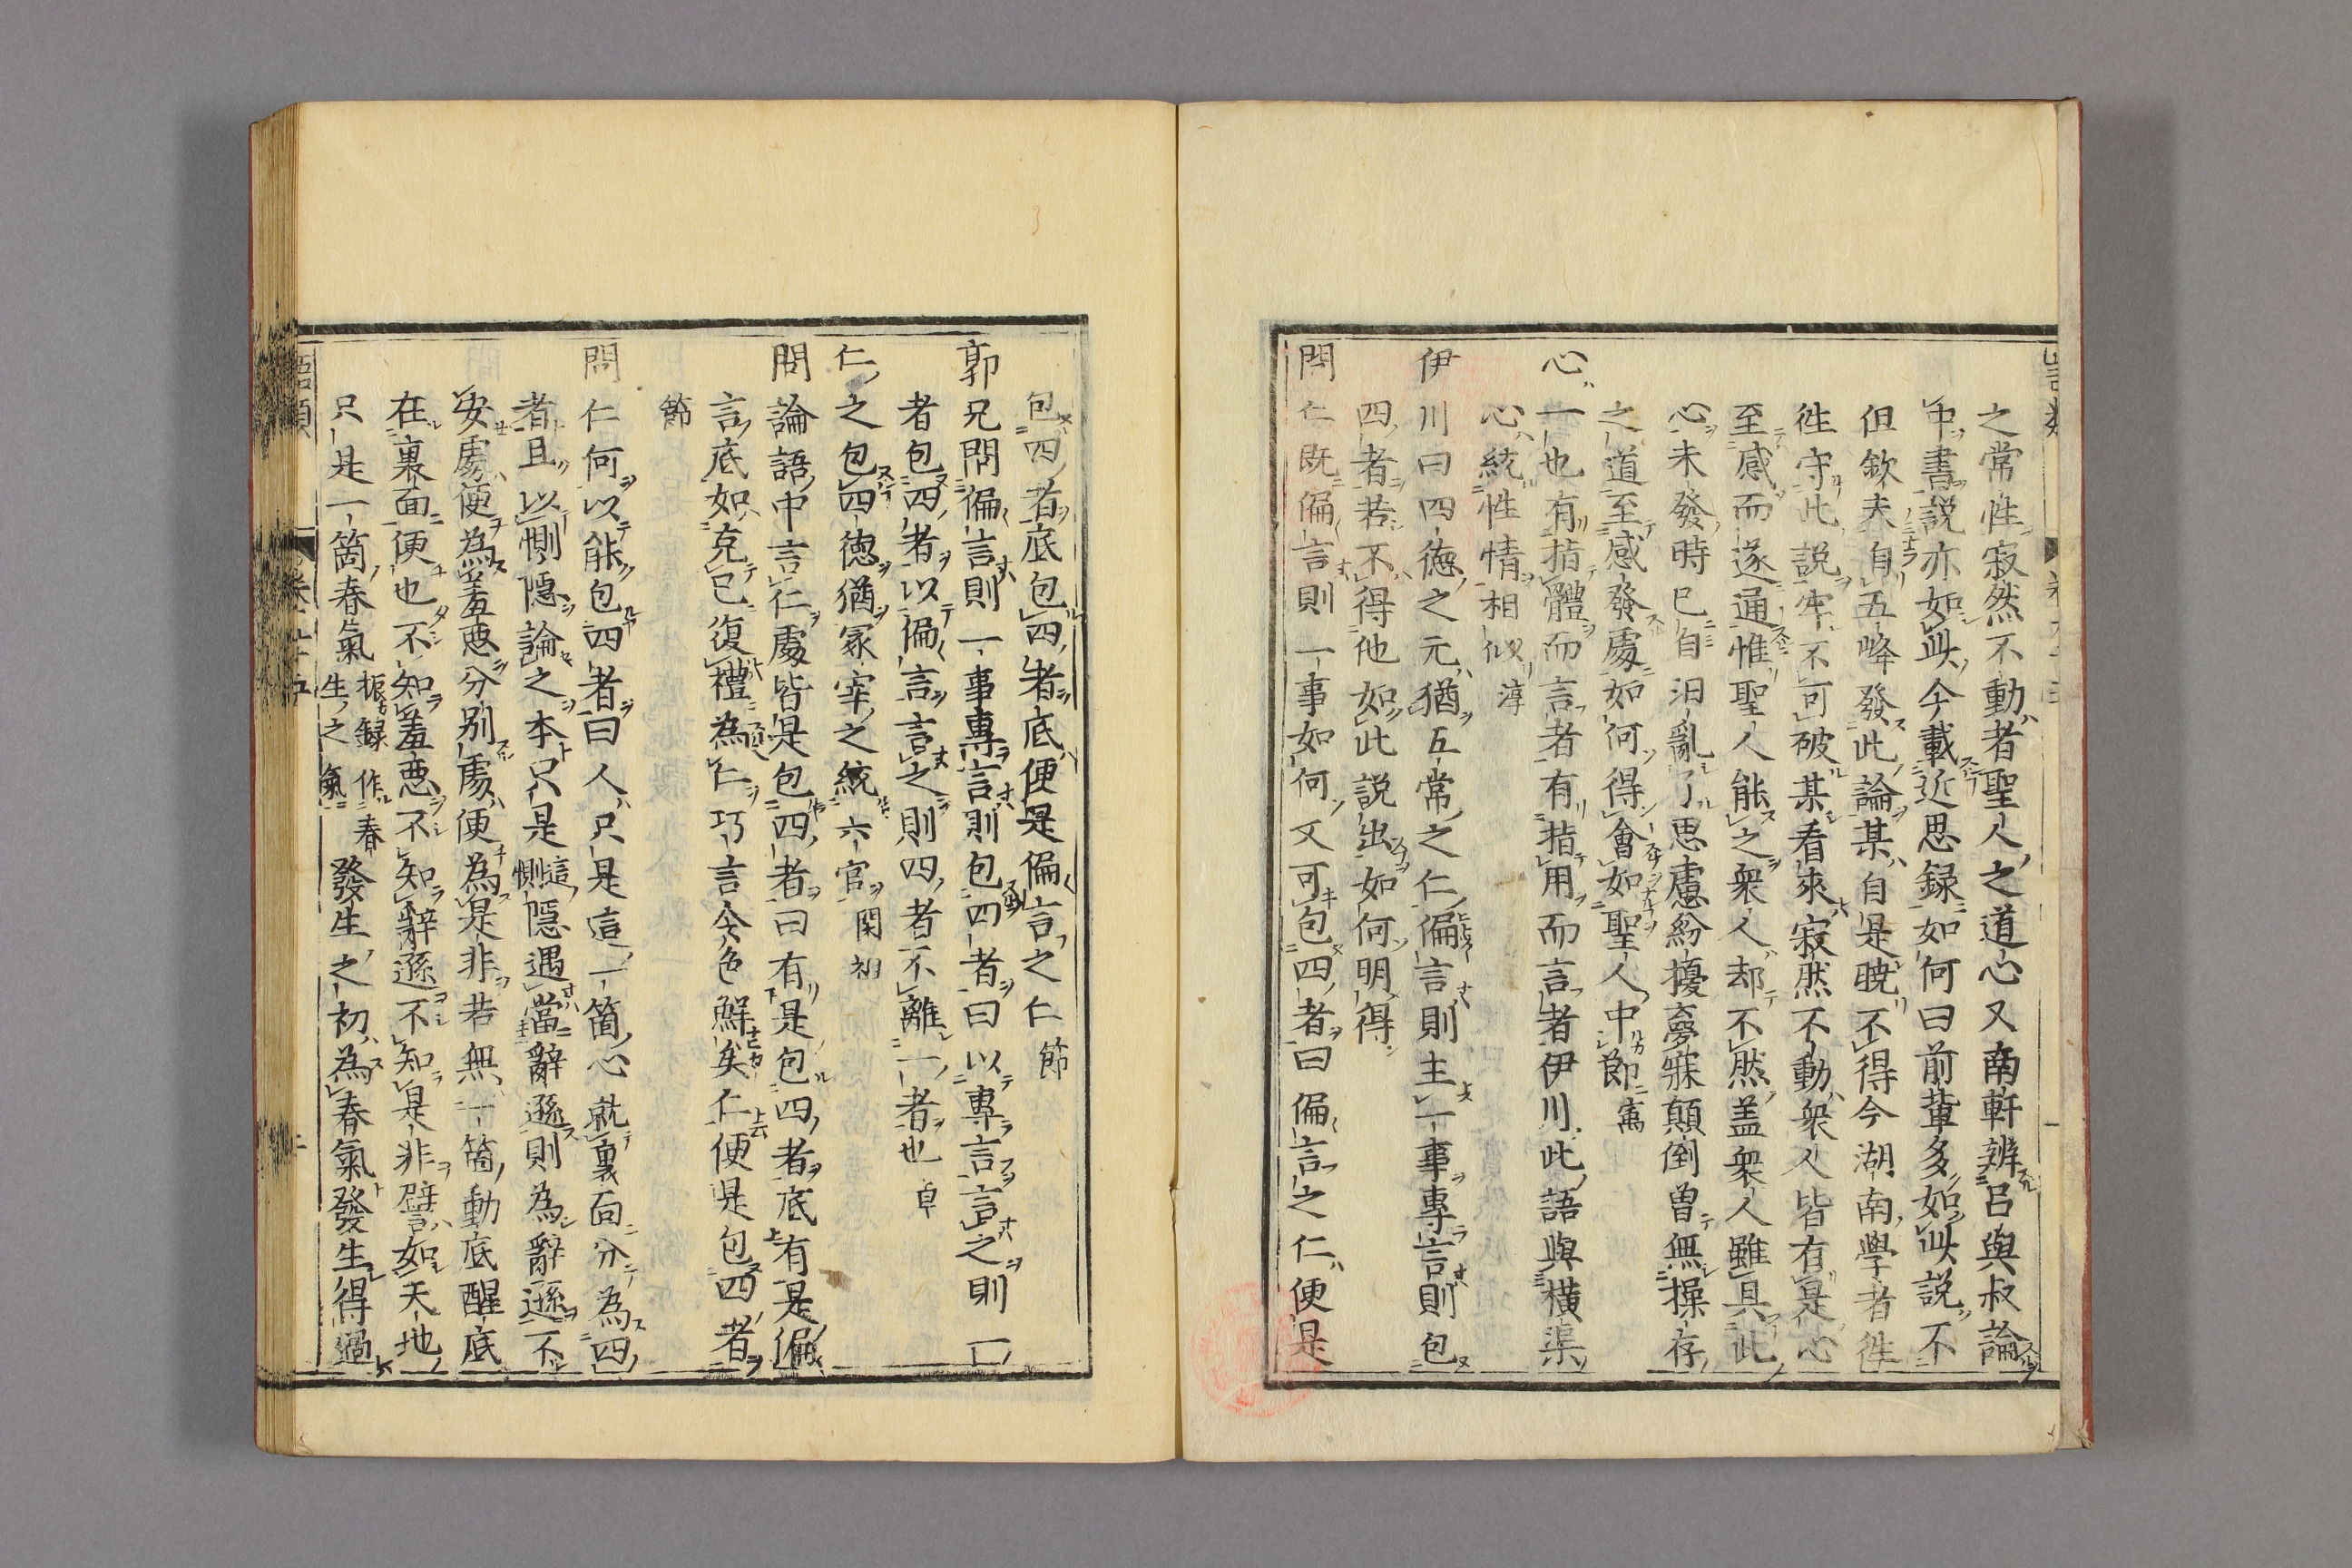 之常性寂然不動者聖人之道心又南軒辨呂與叔論
中書説亦如此今載近思録如何曰前輩多如此説不
但欽夫自五峰發此論某自是曉不得今湖南學者徃
徃守此説牢不可破某看來寂然不動衆人皆有是心
至感而遂通惟聖人能之衆人却不然盖衆人雖具此
心未發時已自汩亂了思慮紛擾夢寐顛倒曽無操存
之道至感發處如何得會如聖人中節 㝢
心一也有指體而言者有指用而言者伊川此語與横渠
心統性情相似 淳
伊川曰四德之元猶五常之仁偏言則主一事專言則包
四者若不得他如此説出如何明得
問仁既偏言則一事如何又可包四者曰偏言之仁便是
包四者底包四者底便是偏言之仁 節
郭兄問偏言則一事專言則包四者曰以專言言之則一
者包四者以偏言言之則四者不離一者也 卓
仁之包四德猶冢宰之統六官 閎祖
問論語中言仁處皆是包四者曰有是包四者底有是偏
言底如克己復禮為仁巧言令色鮮矣仁便是包四者
節
問仁何以能包四者曰人只是這一箇心就裏面分為四
者且以惻隱論之本只是這惻隱遇當辭遜則為辭遜不
安處便為羞惡分别處便為是非若無一箇動底醒底
在裏面便也不知羞惡不知辭遜不知是非譬如天地
只是一箇春氣 振録作春生之氣 發生之初為春氣發生得過
語類 卷九十五